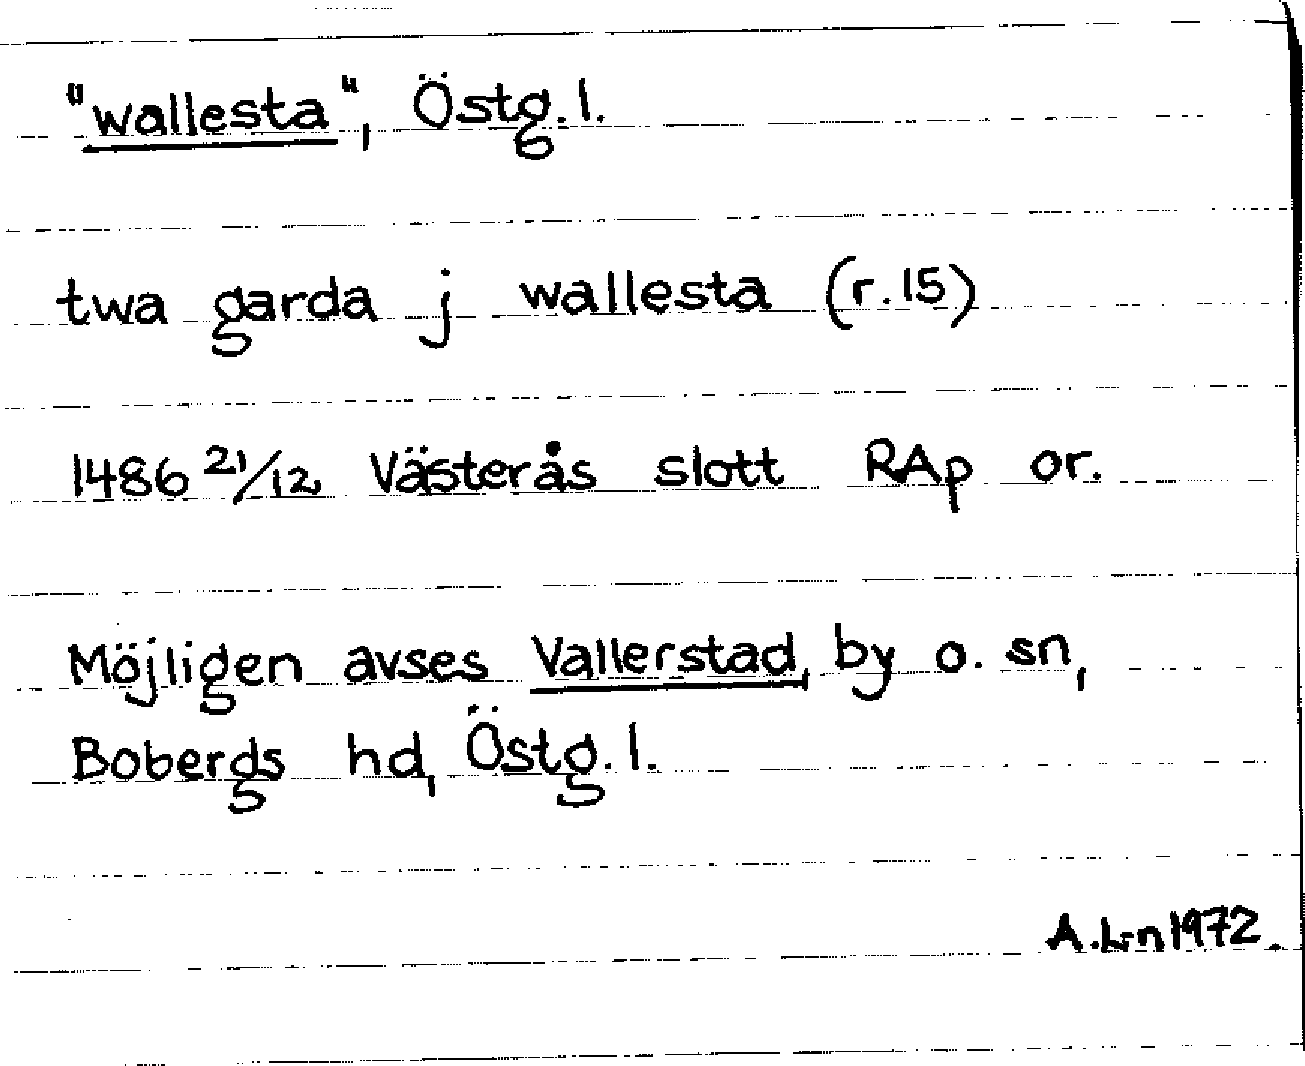 "wallesta", Östg. l.
twa garda j wallesta (r.15)
1486 21/12 Västerås slott RAp or.
Möjligen avses Vallerstad, by o. sn,
Bobergs hd, Östg. l.
A.L-n 1972.